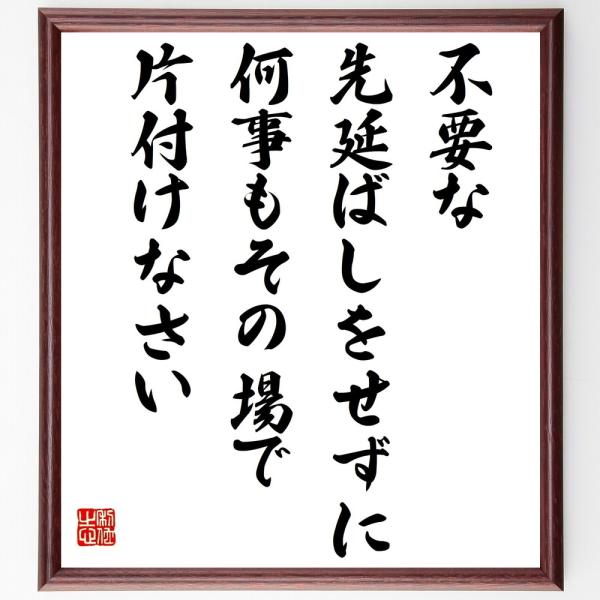 不要な
先延ばしをせずに
何事もその場で
片付けなさい